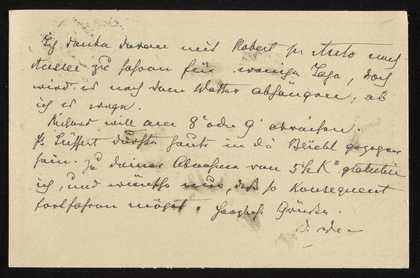 Ich denke daran mit Robert pr Auto nach
zu fahren für wenige Tage, doch
wird es noch vom Wetter abhängen, ob
ich es wage.
Richard will am 8ᵗ oder 9ᵗ
dürfte heute in die Beicht gegangen
sein. Zu deiner Abnahme von 5½ Kᵒ gratuliere
ich, und wünsche nur, daß so konsequent
fortfahren mögst. Herzlichst Grüsse.